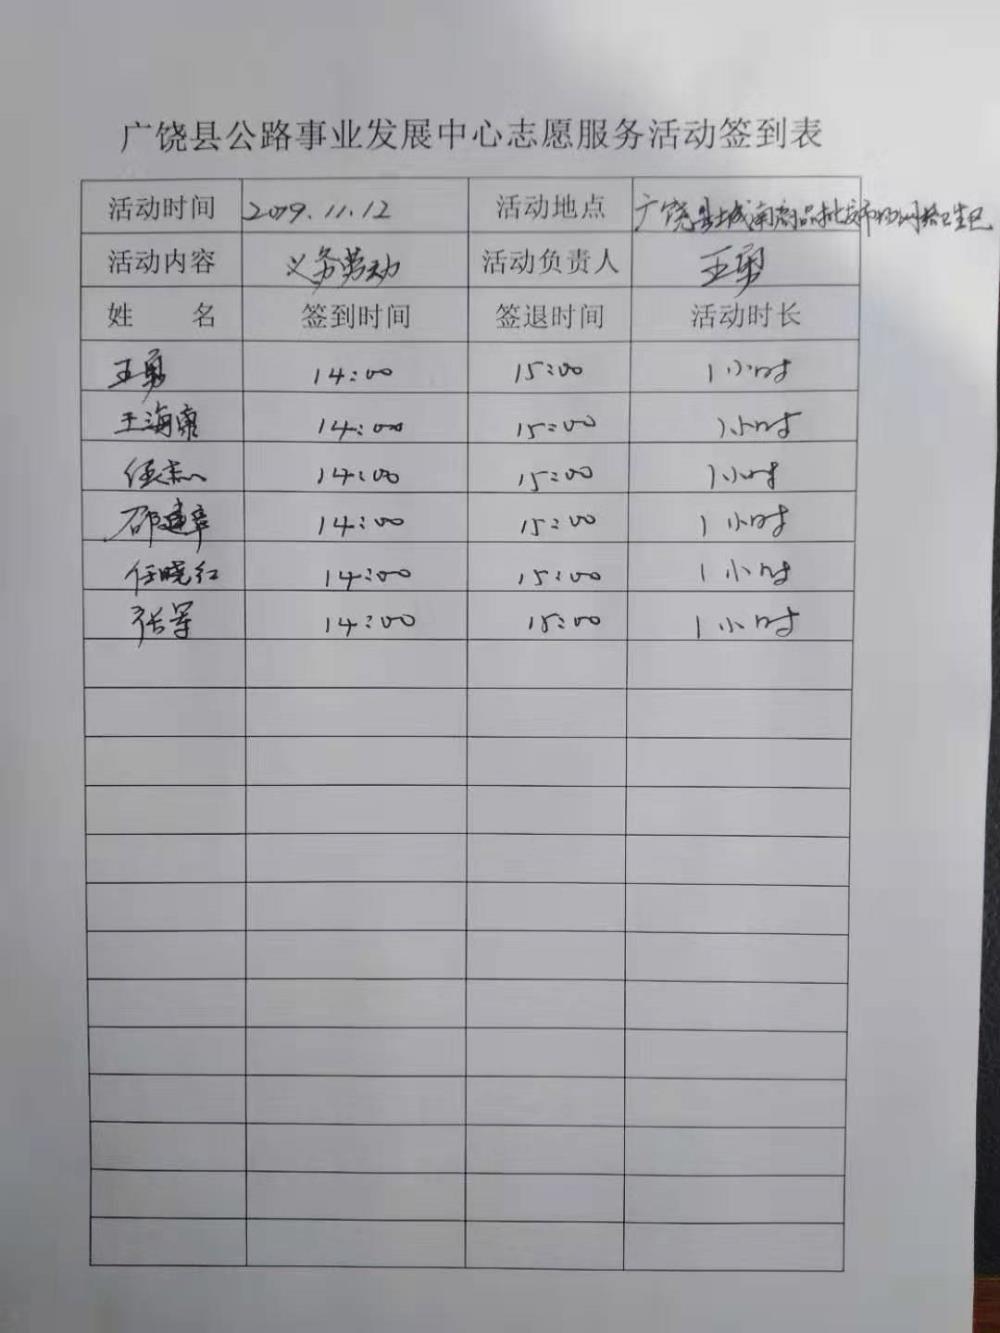 广饶县公路事业发展中心志愿服务活动签到表
活动时间 2019.11.12 活动地点 广饶县城南商品批发市场
活动内容 义务劳动 活动负责人 王勇
姓 名 签到时间 签退时间 活动时长
王勇 14:00 15:00 1小时
王海 14:00 15:00 1小时
14:00 15:00 1小时
邵建章 14:00 15:00 1小时
任晓红 14:00 15:00 1小时
张军 14:00 15:00 1小时